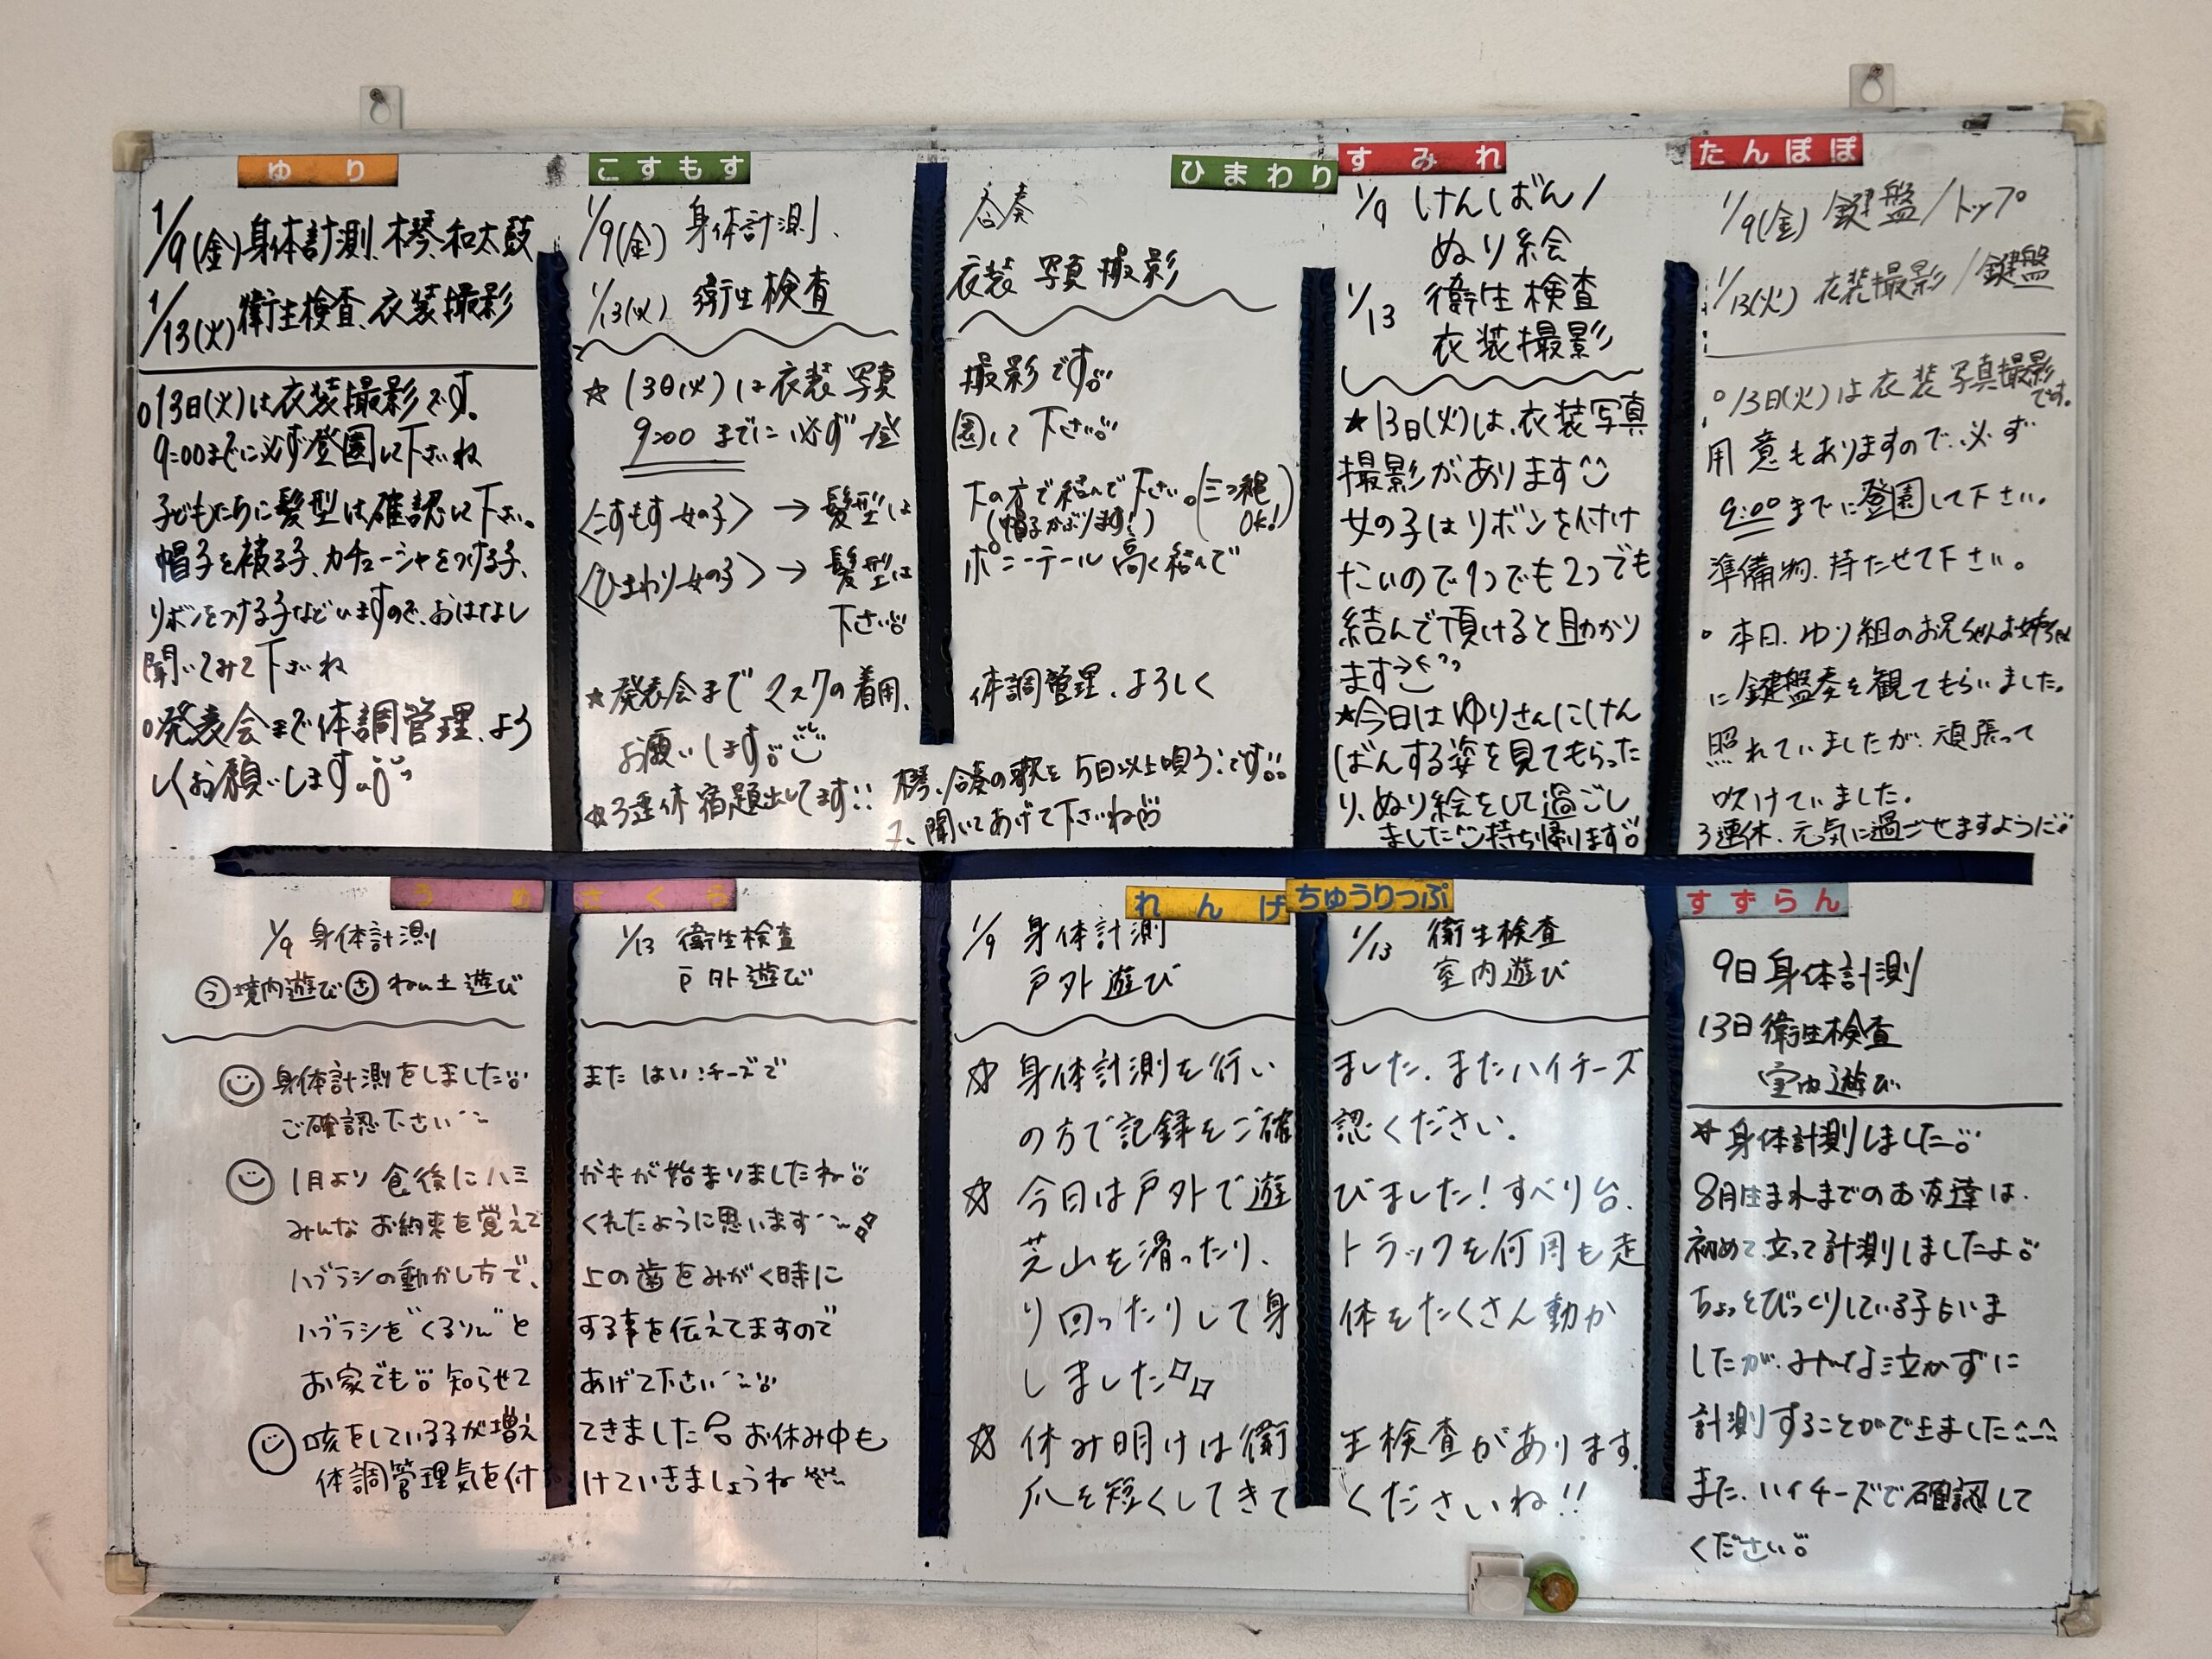 ゆり
1/9(金)身体計測、木琴、和太鼓
1/13(火)衛生検査、衣装撮影
○13日(火)は衣装撮影です。
9:00までに必ず登園して下さいね
子どもたちに髪型は確認して下さい。
帽子を被る子、カチューシャをつける子、
リボンをつける子などいますので、おはなし
聞いてみて下さいね
○発表会まで体調管理、よろ
しくお願いします。
こすもす ひまわり
1/9(金) 身体計測、合奏
1/13(火) 衛生検査 衣装写真撮影
☆13日(火)は衣装写真撮影です
9:00までに必ず登園して下さい
〈こすもす女の子〉→髪型は下の方で結んで下さい。(三つ編OK!)
(帽子かぶります!)
〈ひまわり女の子〉→髪型はポニーテール高く結んで
下さい
☆発表会までマスクの着用、体調管理、よろしく
お願いします。
☆3連休宿題出してます!!木琴、合奏の歌を5日以上唄う!です
聞いてあげて下さいね
すみれ
1/9 けんばん/
ぬり絵
1/13 衛生検査
衣装撮影
★13日(火)は、衣装写真
撮影があります
女の子はリボンを付け
たいので1つでも2つでも
結んで頂けると助かり
ます
★今日はゆりさんにけん
ばんする姿を見てもらった
り、ぬり絵をして過ごし
ました 持ち帰ります
たんぽぽ
1/9(金) 鍵盤/トップ
1/13(火) 衣装撮影/鍵盤
○13日(火)は衣装写真撮影
です。
用意もありますので、必ず
9:00までに登園して下さい。
準備物、持たせて下さい。
○本日、ゆり組のお兄ちゃんお姉ちゃん
に鍵盤奏を観てもらいました。
照れていましたが、頑張って
吹けていました。
3連休、元気に過ごせますように
うめ さくら
1/9 身体計測 1/13 衛生検査
う境内遊び さねん土遊び 戸外遊び
身体計測をしました またはいチーズで
ご確認下さい
1月より食後にハミがきが始まりましたね
みんなお約束を覚えてくれたように思います
ハブラシの動かし方で、上の歯をみがく時に
ハブラシを"くるりん"とする事を伝えてますので
お家でも知らせてあげて下さい
咳をしている子が増えてきました お休み中も
体調管理気を付けていきましょうね
れんげ ちゅうりっぷ
1/9 身体計測 1/13 衛生検査
戸外遊び 室内遊び
☆身体計測を行いました。またハイチーズ
の方で記録をご確認ください。
☆今日は戸外で遊びました!すべり台、
芝山を滑ったり、トラックを何周も走
り回ったりして身体をたくさん動か
しました
☆休み明けは衛生検査があります。
爪を短くしてきてくださいね!!
すずらん
9日 身体計測
13日 衛生検査
室内遊び
☆身体計測しました
8月生まれまでのお友達は、
初めて立って計測しましたよ
ちょっとびっくりしている子もいま
したが、みんな泣かずに
計測することができました
また、ハイチーズで確認して
ください